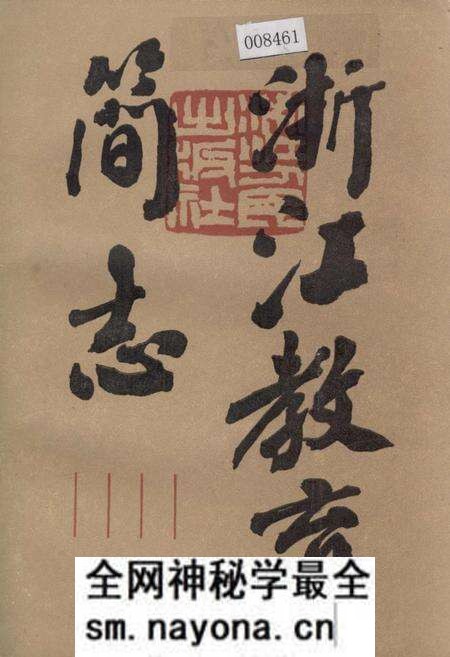 008461
浙江教育
簡志
浙江人民
出版社
全网神秘学最全
sm.nayona.cn